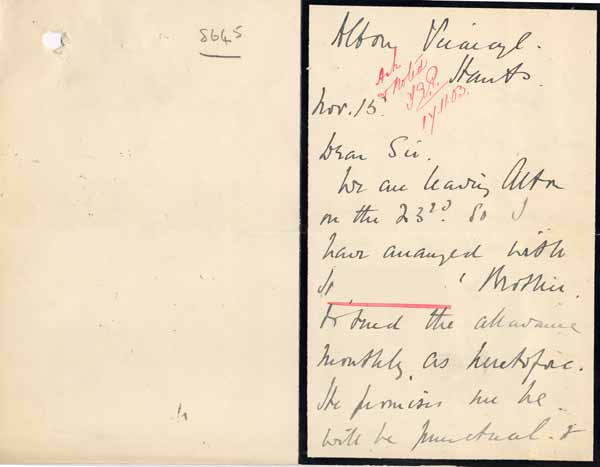 8645
Alton Vicarage.
Hants.
Ack
& Noted
17.11.03.
Nov. 15
Dear Sir.
We are leaving Alton
on the 23rd. So I
have arranged with
Brother.
to send the allowance
monthly as heretofore.
He promises me he
will be punctual. &